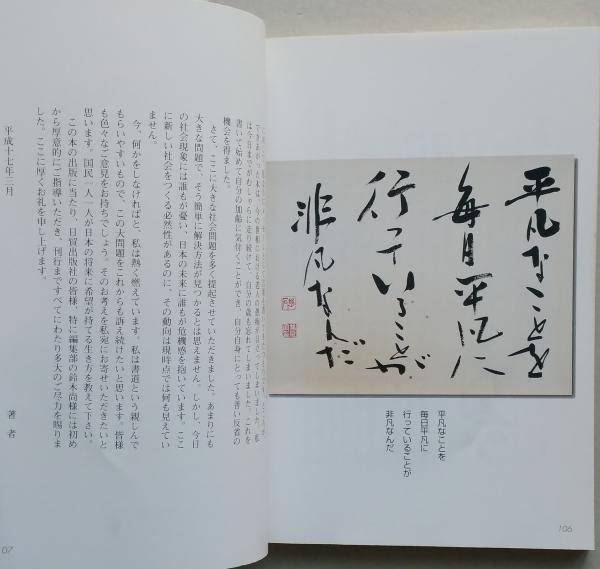 平凡なことを
毎日平凡に
行っていることが
非凡なんだ
平凡なことを
毎日平凡に
行っていることが
非凡なんだ
106
は今日までがむしゃらに走り続けて、自分の歳も忘れてしまいました。これを
書いて始めて自分の加齢に気付くことができ、自分自身にとっても善い反省の
機会を得ました。
さて、ここに大きな社会問題を多く提起させていただきました。あまりにも
大きな問題で、そう簡単に解決方法が見つかるとは思えません。しかし、今日
の社会現象には誰もが憂い、日本の未来に誰もが危機感を抱いています。ここ
に新しい社会をつくる必然性があるのに、その動向は現時点では何も見えてい
ません。
今、何かをしなければと、私は熱く燃えています。私は書道という親しんで
もらいやすいもので、この大問題をこれからも訴え続けたいと思います。皆様
も色々なご意見をお持ちでしょう。そのお考えを私宛にお寄せいただきたいと
思います。国民一人一人が日本の将来に希望が持てる生き方を教えて下さい。
この本の出版に当たり、日貿出版社の皆様、特に編集部の鈴木尚様には初め
から厚意的にご指導いただき、刊行まですべてにわたり多大のご尽力を賜りま
した。ここに厚くお礼を申し上げます。
平成十七年三月
著者
07